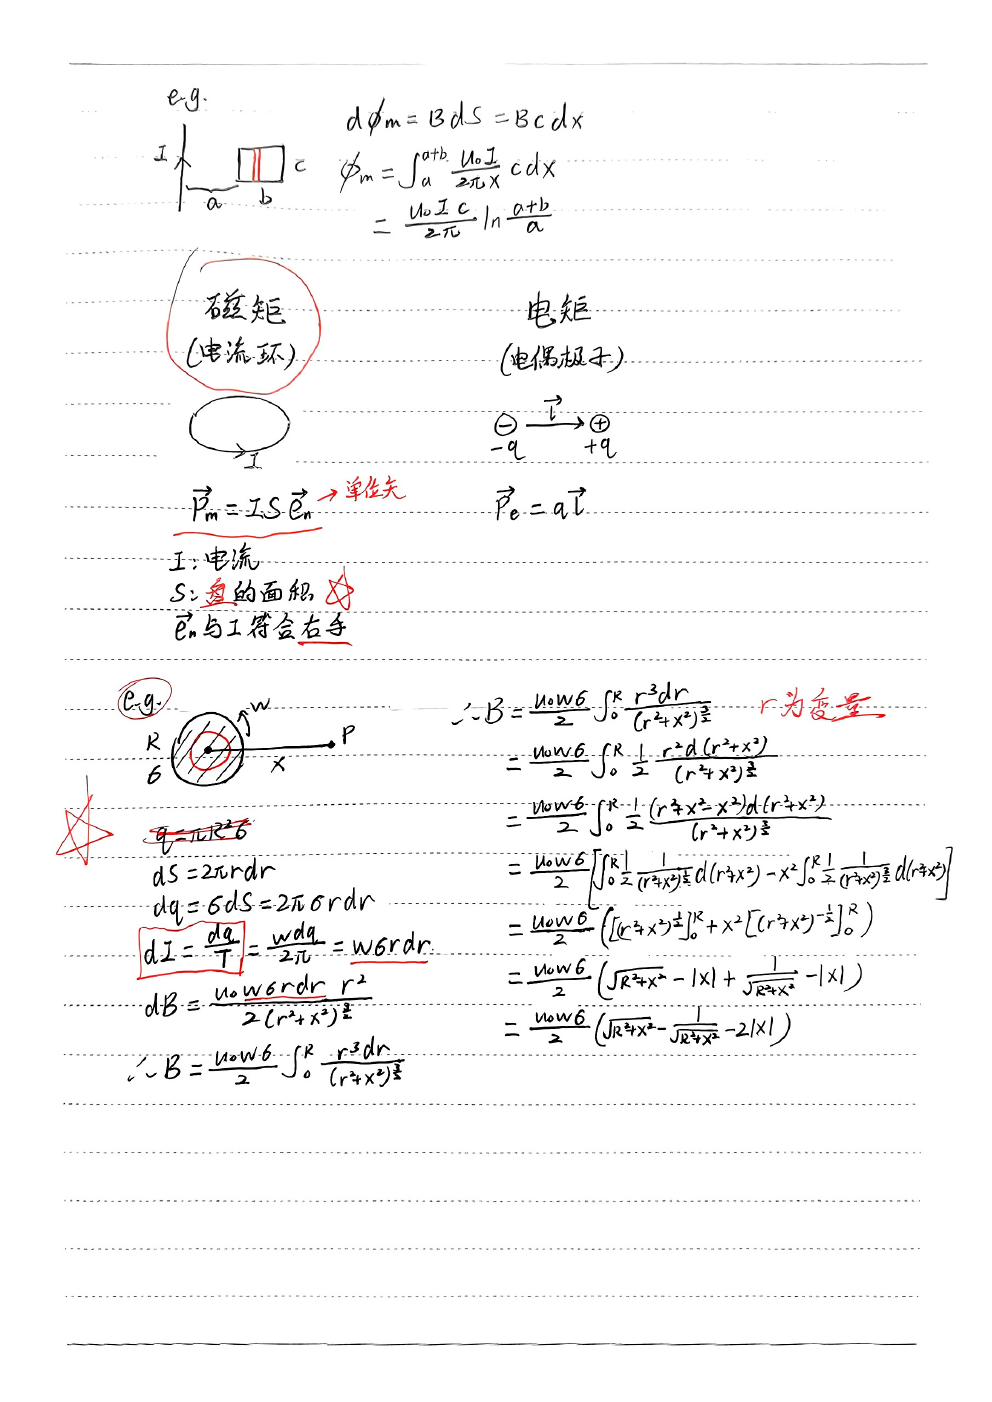 e.g.
I
a
b
c
dϕm = BdS = Bcdx
ϕm = ∫_a^{a+b} \frac{u₀I}{2πx} cdx
= \frac{u₀Ic}{2π} ln \frac{a+b}{a}
磁矩
(电流环)
I
P⃗m = IS e⃗n → 单位矢
I: 电流
S: 盘的面积 ☆
e⃗n与I符合右手
电矩
(电偶极子)
⊖ l⃗ ⊕
-q +q
P⃗e = ql⃗
e.g.
R
σ
w
x
P
q = πR²σ
dS = 2πrdr
dq = σdS = 2πσrdr
dI = \frac{dq}{T} = \frac{wdq}{2π} = wσrdr
dB = \frac{u₀wσrdr r²}{2(r²+x²)^{\frac{3}{2}}}
∴ B = \frac{u₀wσ}{2} ∫_0^R \frac{r³dr}{(r²+x²)^{\frac{3}{2}}}
∴ B = \frac{u₀wσ}{2} ∫_0^R \frac{r³dr}{(r²+x²)^{\frac{3}{2}}} r为变量
= \frac{u₀wσ}{2} ∫_0^R \frac{1}{2} \frac{r²d(r²+x²)}{(r²+x²)^{\frac{3}{2}}}
= \frac{u₀wσ}{2} ∫_0^R \frac{1}{2} \frac{(r²+x²-x²)d(r²+x²)}{(r²+x²)^{\frac{3}{2}}}
= \frac{u₀wσ}{2} [∫_0^R \frac{1}{2} \frac{1}{(r²+x²)^{\frac{1}{2}}} d(r²+x²) - x² ∫_0^R \frac{1}{2} \frac{1}{(r²+x²)^{\frac{3}{2}}} d(r²+x²)]
= \frac{u₀wσ}{2} ([(r²+x²)^{\frac{1}{2}}]_0^R + x² [(r²+x²)^{-\frac{1}{2}}]_0^R)
= \frac{u₀wσ}{2} (√{R²+x²} - |x| + \frac{1}{√{R²+x²}} - |x|)
= \frac{u₀wσ}{2} (√{R²+x²} - \frac{1}{√{R²+x²}} - 2|x|)